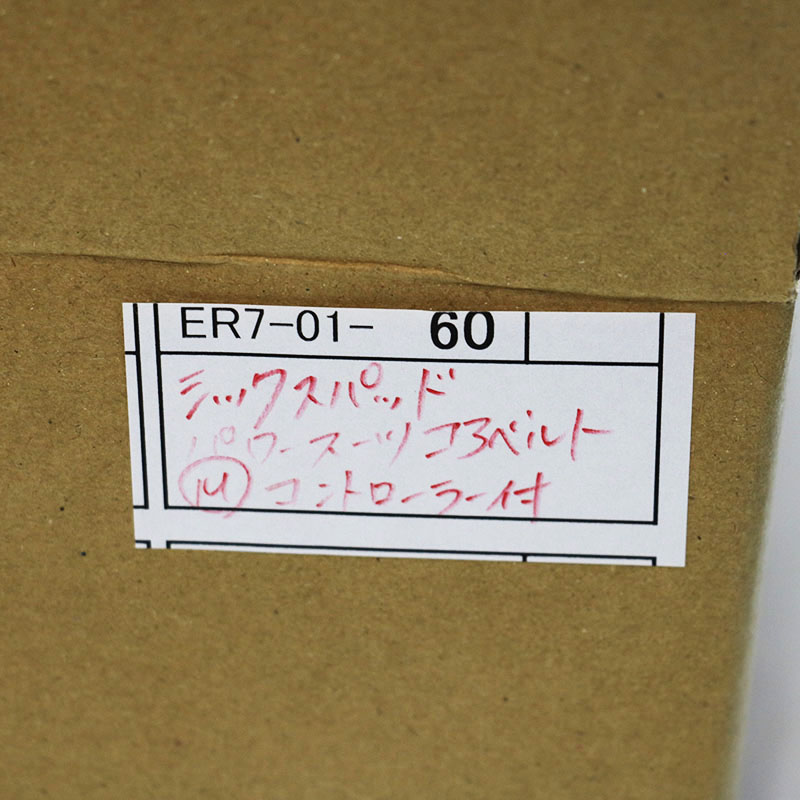 ER7-01- 60
シックスパッド
パワースーツコアベルト
Ⓜ コントローラー付